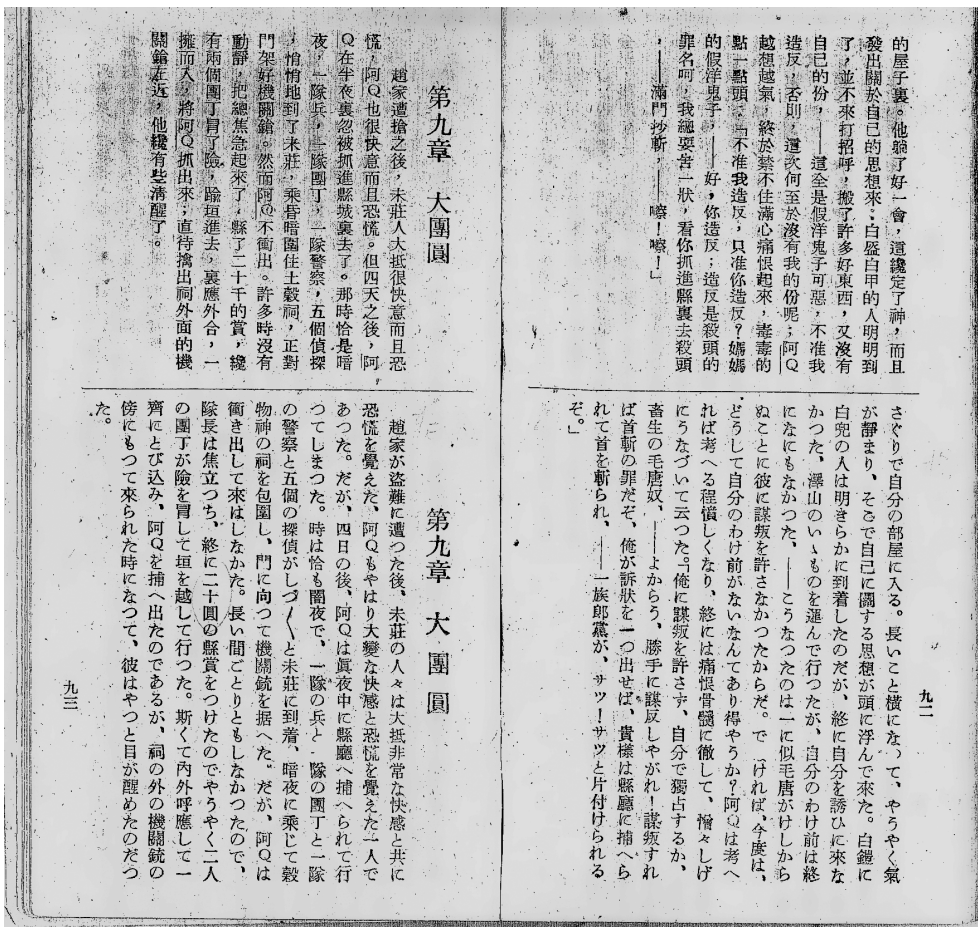 的屋子裏。他躺了好一會,這纔定了神,而且
發出關於自己的思想來:白盔白甲的人明明到
了,並不來打招呼,搬了許多好東西,又沒有
自己的份,——這全是假洋鬼子可惡,不准我
造反,否則,這次何至於沒有我的份呢;阿Q
越想越氣,終於禁不住滿心痛恨起來,毒毒的
點一點頭:「不准我造反,只准你造反?媽媽
的假洋鬼子,——好,你造反;造反是殺頭的
罪名呵,我總要告一狀,看你抓進縣裏去殺頭
,——滿門抄斬,——嚓!嚓!」
さぐりで自分の部屋に入る。長いこと橫になつて、やうやく氣
が靜まり、そこで自己に關する思想が頭に浮んで來た。白鎧に
白兜の人は明きらかに到着したのだが、終に自分を誘ひに來な
かつた、澤山のいゝものを運んで行つたが、自分のわけ前は終
になにもなかつた、——こうなつたのは一に似毛唐がけしから
ぬことに彼に謀叛を許さなかつたからだ。で ければ、今度は、
どうして自分のわけ前がないなんてあり得やうか?阿Qは考へ
れば考へる程憤しくなり、終には痛恨骨髓に徹して、憎々しげ
にうなづいて云つた。「俺に謀叛を許さず、自分で獨占するか、
畜生の毛唐奴、——よからう、勝手に謀反しやがれ!謀叛すれ
ば首斬の罪だぞ、俺が訴狀を一つ出せば、貴樣は縣廳に捕へら
れて首を斬られ、——一族郎黨が、サツ!サツと片付けられる
ぞ。」
九二
第九章 大團圓
趙家遭搶之後,未莊人大抵很快意而且恐
慌,阿Q也很快意而且恐慌。但四天之後,阿
Q在半夜裏忽被抓進縣城裏去了。那時恰是暗
夜,一隊兵,一隊團丁,一隊警察,五個偵探
,悄悄地到了未莊,乘昏暗圍住土穀祠,正對
門架好機關鎗。然而阿Q不衝出。許多時沒有
動靜,把總焦急起來了,懸了二十千的賞,纔
有兩個團丁冒了險,踰垣進去,裏應外合,一
擁而入,將阿Q抓出來;直待擒出祠外面的機
關鎗左近,他纔有些清醒了。
第九章 大團圓
趙家が盜難に遭つた後、未莊の人々は大抵非常な快感と共に
恐慌を覺えた、阿Qもやはり大變な快感と恐慌を覺えた一人で
あつた。だが、四日の後、阿Qは眞夜中に縣廳へ捕へられて行
つてしまつた。時は恰も闇夜で、一隊の兵と一隊の團丁と一隊
の警察と五個の探偵がしづ〱と未莊に到着、暗夜に乘じて穀
物神の祠を包圍し、門に向つて機關銃を据へた。だが、阿Qは
衝き出して來はしなかた。長い間ごとりともしなかつたので、
隊長は焦立つち、終に二十圓の懸賞をつけたのでやうやく二人
の團丁が險を冒して垣を越して行つた。斯くて內外呼應して一
齊にとび込み、阿Qを捕へ出たのであるが、祠の外の機關銃の
傍にもつて來られた時になつて、彼はやつと目が醒めたのだつ
た。
九三